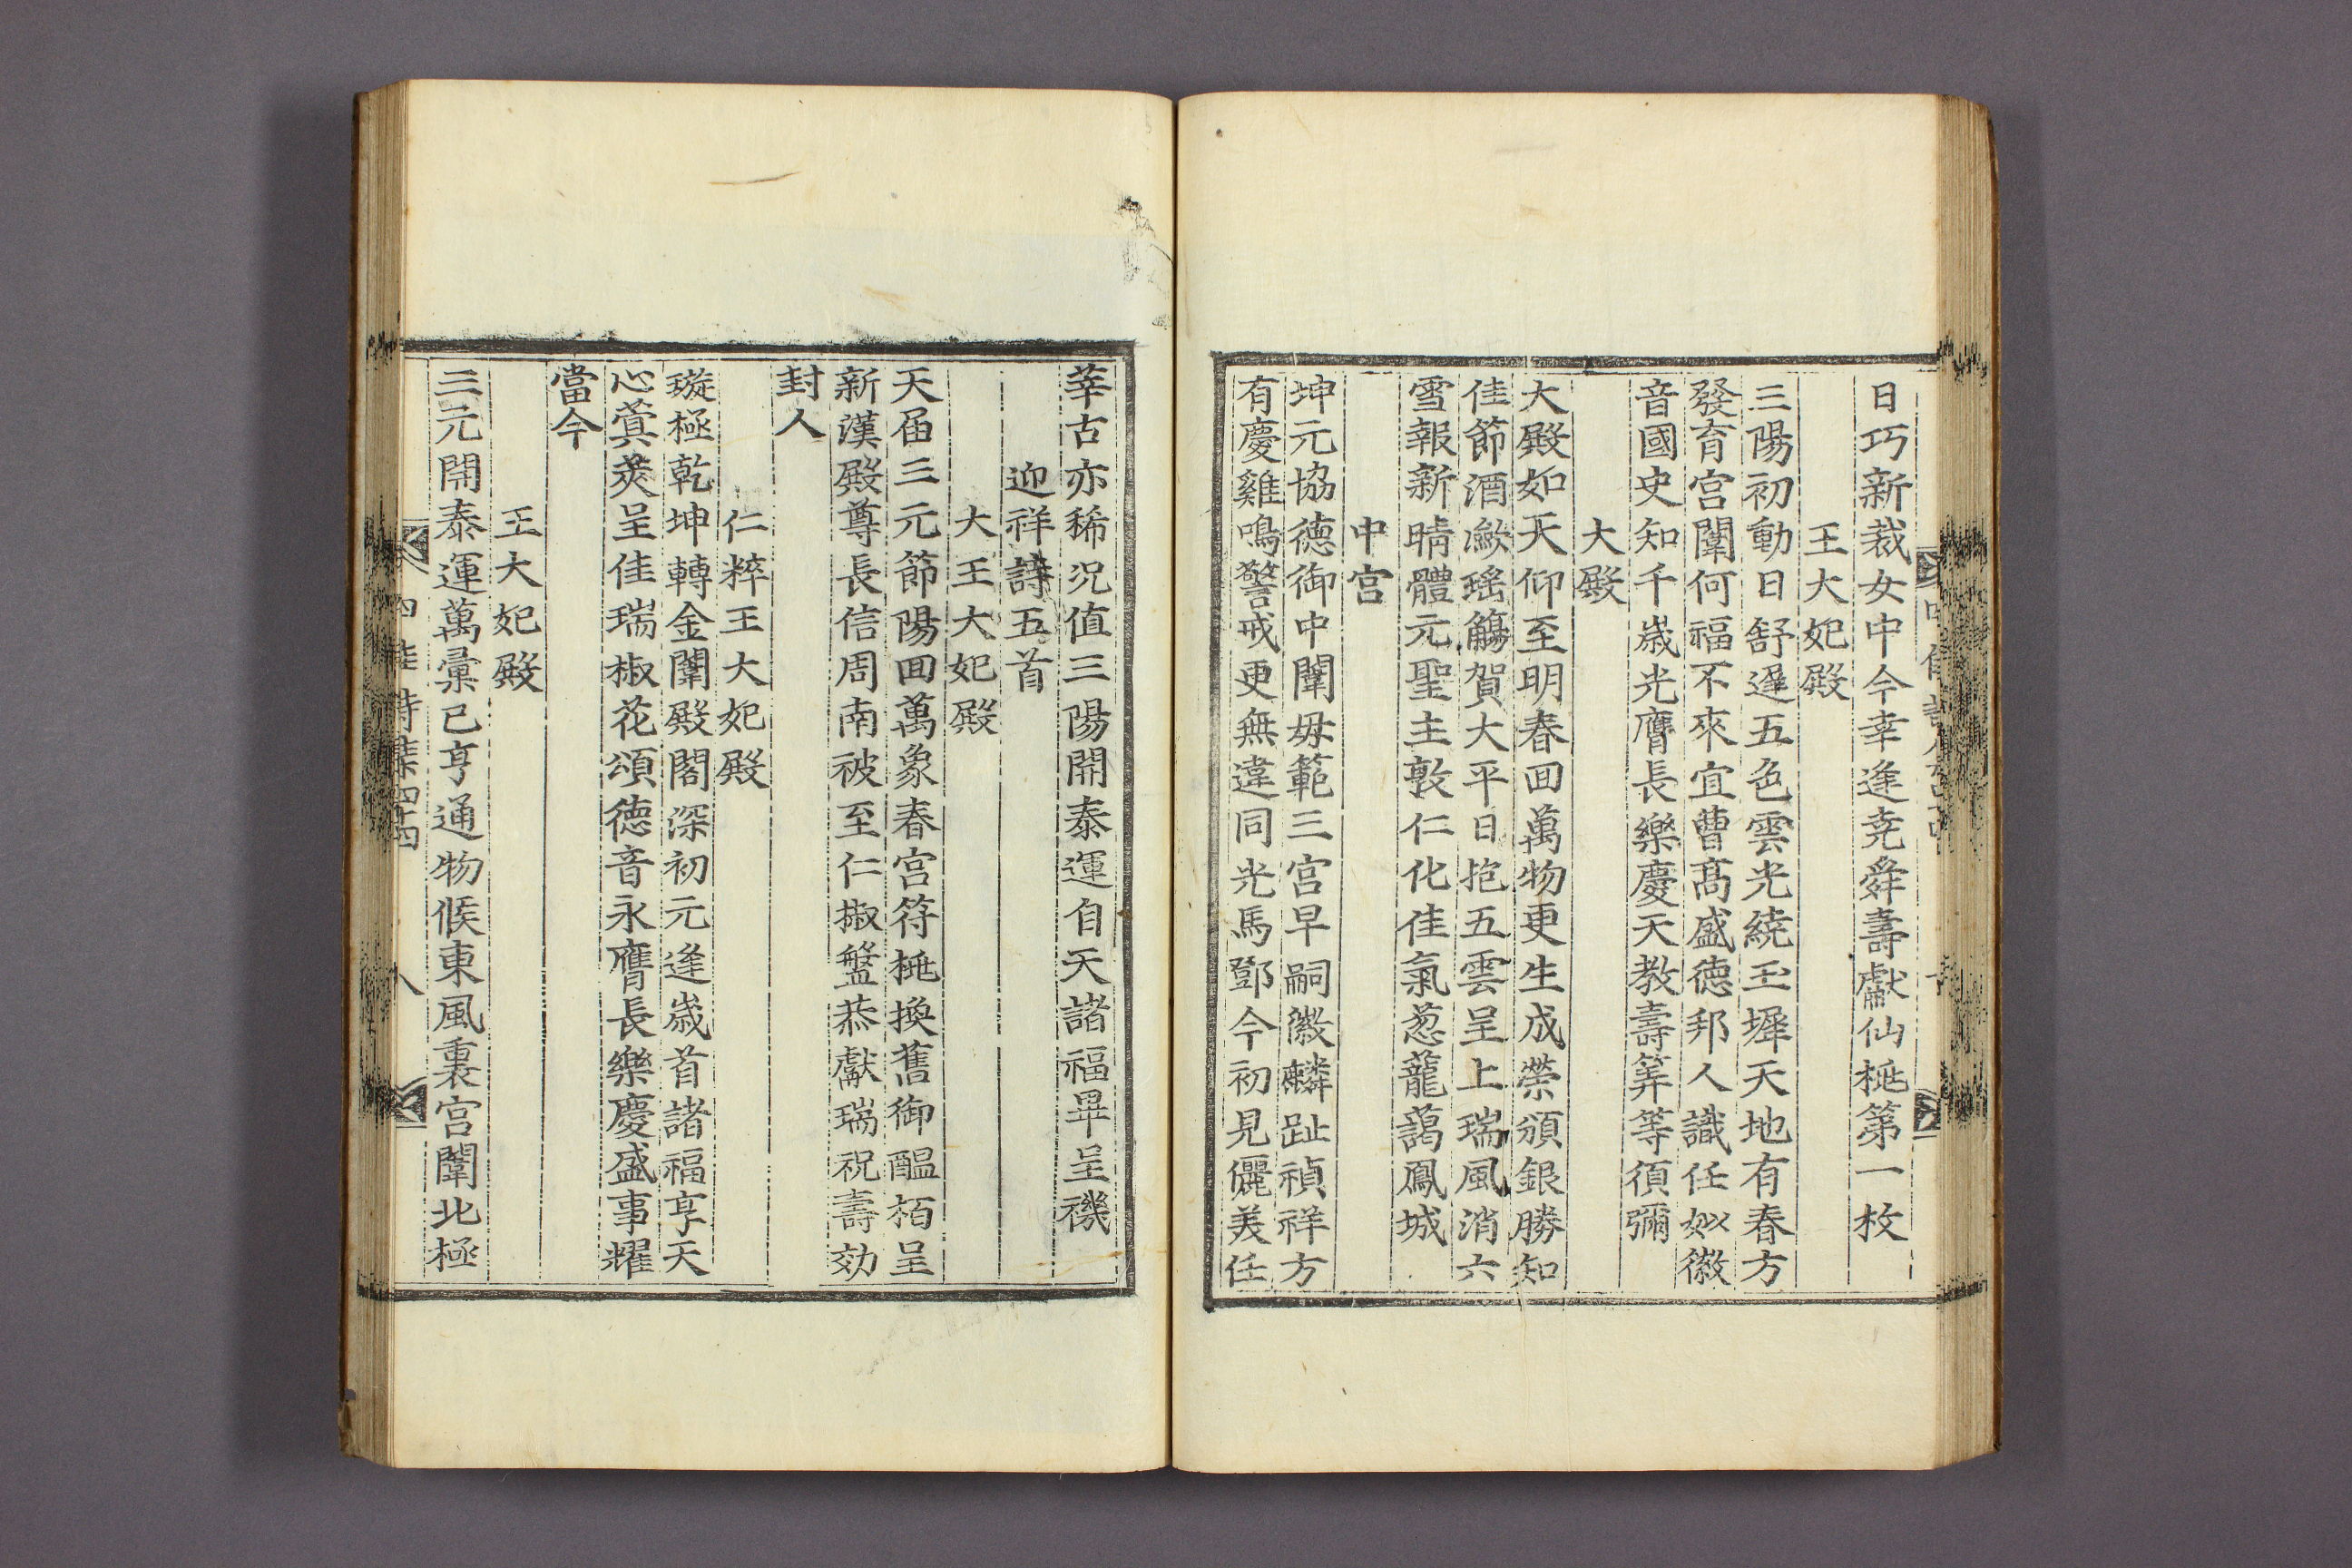 日巧新裁女中今幸逢尭舜壽獻仙桃第一枚
王大妃殿
三陽初動日舒遟五色雲光繞玉墀天地有春方
發育宮闈何福不來宜曹髙盛德邦人識任姒徽
音國史知千歲光膺長樂慶天教壽筭等須彌
大殿
大殿如天仰至明春回萬物更生成榮頒銀勝知
佳節酒瀲瑤觴賀大平日抱五雲呈上瑞風消六
雪報新晴體元聖主敦仁化佳氣葱蘢藹鳳城
中宮
坤元協德御中闈毋範三宮早嗣徽麟趾禎祥方
有慶雞鳴警戒更無違同光馬鄧今初見儷美任
莘古亦稀況值三陽開泰運自天諸福畢呈禨
迎祥詩五首
大王大妃殿
天届三元節陽回萬象春宮符桃換舊御醞栢呈
新漢殿尊長信周南被至仁椒盤恭獻瑞祝壽効
封人
仁粹王大妃殿
璇極乾坤轉金闈殿閣深初元逢歲首諸福享天
心蓂莢呈佳瑞椒花頌德音永膺長樂慶盛事耀
當今
王大妃殿
三元開泰運萬彙已亨通物候東風裏宮闈北極
四佳詩集四十四
八